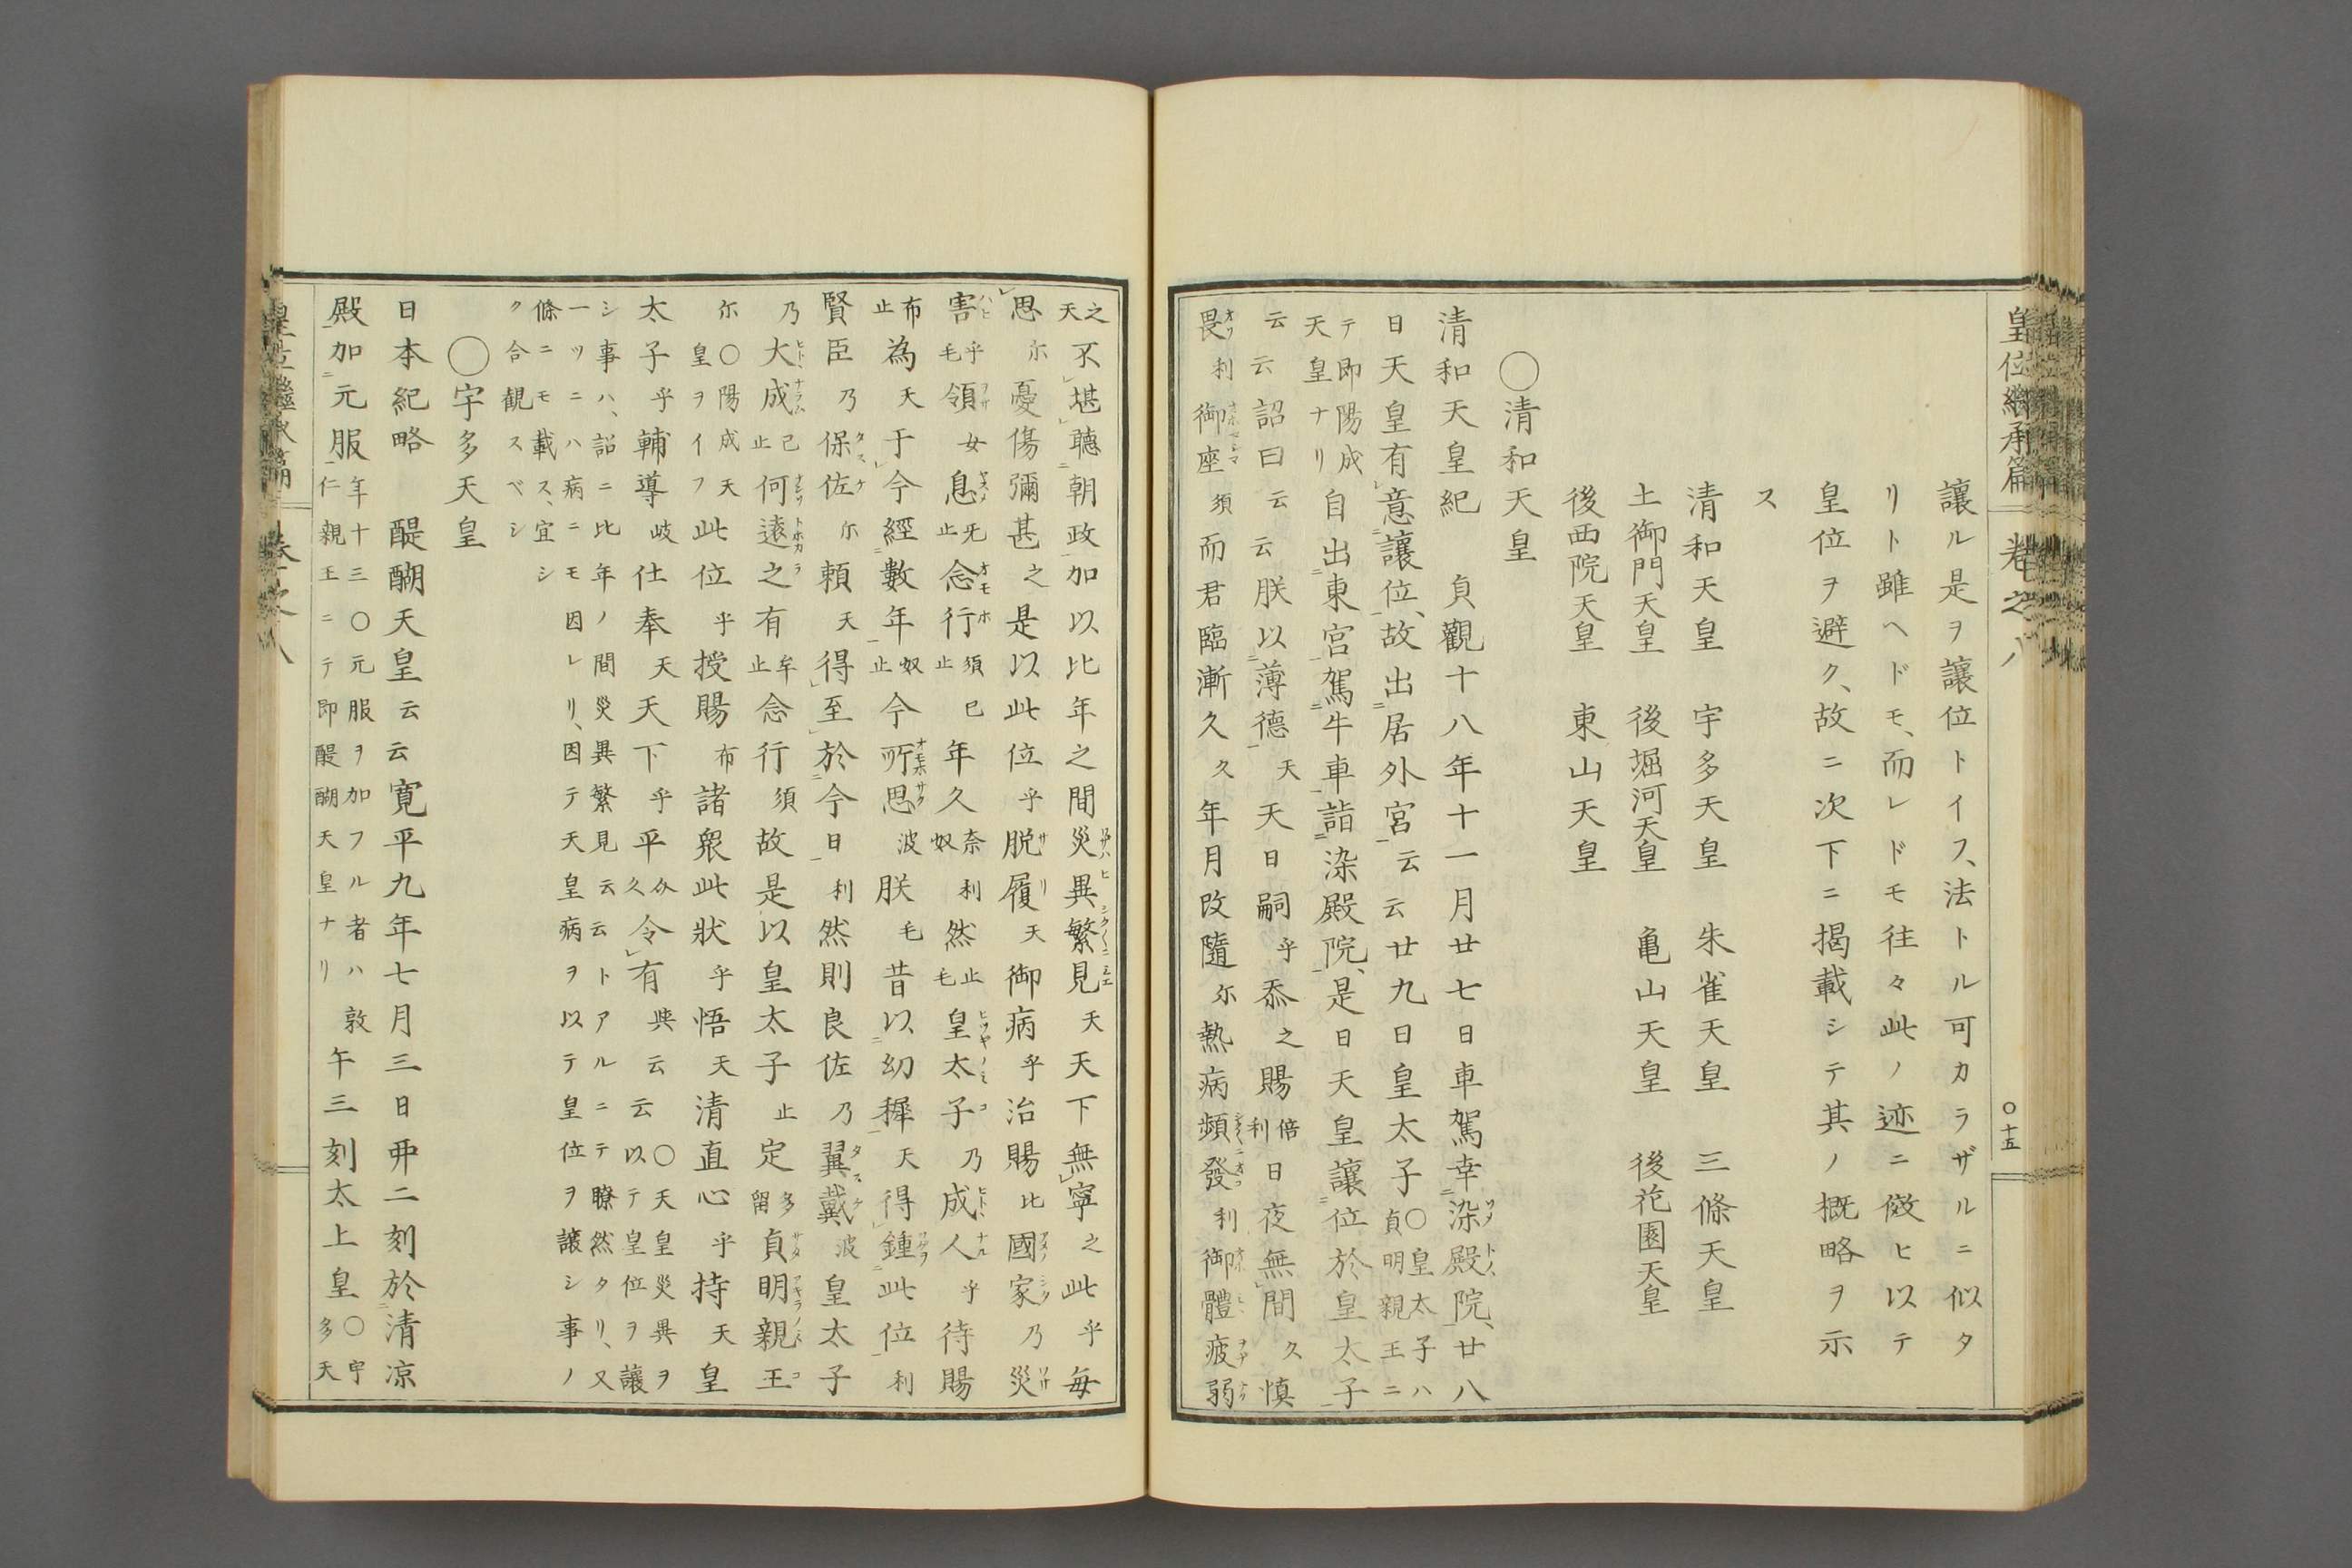 皇位繼承篇 卷之八 ○十五
讓ル是ヲ讓位トイフ、法トル可カラザルニ似タ
リト雖ヘドモ、而レドモ往々此ノ迹ニ倣ヒ以テ
皇位ヲ避ク、故ニ次下ニ揭載シテ其ノ概略ヲ示
ス
清和天皇 宇多天皇 朱雀天皇 三條天皇
土御門天皇 後堀河天皇 亀山天皇 後花園天皇
後西院天皇 東山天皇
○清和天皇
清和天皇紀 貞觀十八年十一月廿七日車駕幸染殿院、廿八
日天皇有意讓位、故出居外宮云云廿九日皇太子○皇太子ハ貞明親王ニ
テ即陽成天皇ナリ自出東宮駕牛車詣染殿院、是日天皇讓位於皇太子
云云詔曰云云朕以薄德天天日嗣乎忝之賜倍利日夜無間久慎
畏利御座須而君臨漸久久年月改隨尓熱病頻發利御體疲弱
之天不堪聽朝政加以比年之間災異繁見天天下無寧之此乎每
思尓憂傷彌甚之是以此位乎脱履天御病乎治賜比國家乃災
害乎毛領女息无止念行須止已年久奈奴利然止毛皇太子乃成人乎待賜
布止為天于今經數年奴止今所思波朕毛昔以幼穉天得鍾此位利
賢臣乃保佐尓頼天得至於今日利然則良佐乃翼戴波皇太子
乃大成己止何遠之有牟止念行須故是以皇太子止定多留貞明親王
尓○陽成天皇ヲイフ此位乎授賜布諸衆此狀乎悟天清直心乎持天皇
太子乎輔導岐仕奉天天下乎平介久令有與云云○天皇災異ヲ以テ皇位ヲ讓
シ事ハ、詔ニ比年ノ間災異繁見云云トアルニテ瞭然タリ、又
一ツニハ病ニモ因レリ、因テ天皇病ヲ以テ皇位ヲ讓シ事ノ
條ニモ載ス、宜シ
ク合観スベシ
○宇多天皇
日本紀略 醍醐天皇云云寛平九年七月三日丙二刻於清凉
殿加元服年十三○元服ヲ加フル者ハ敦仁親王ニテ即醍醐天皇ナリ午三刻太上皇○宇多天
皇位繼承篇 卷之八